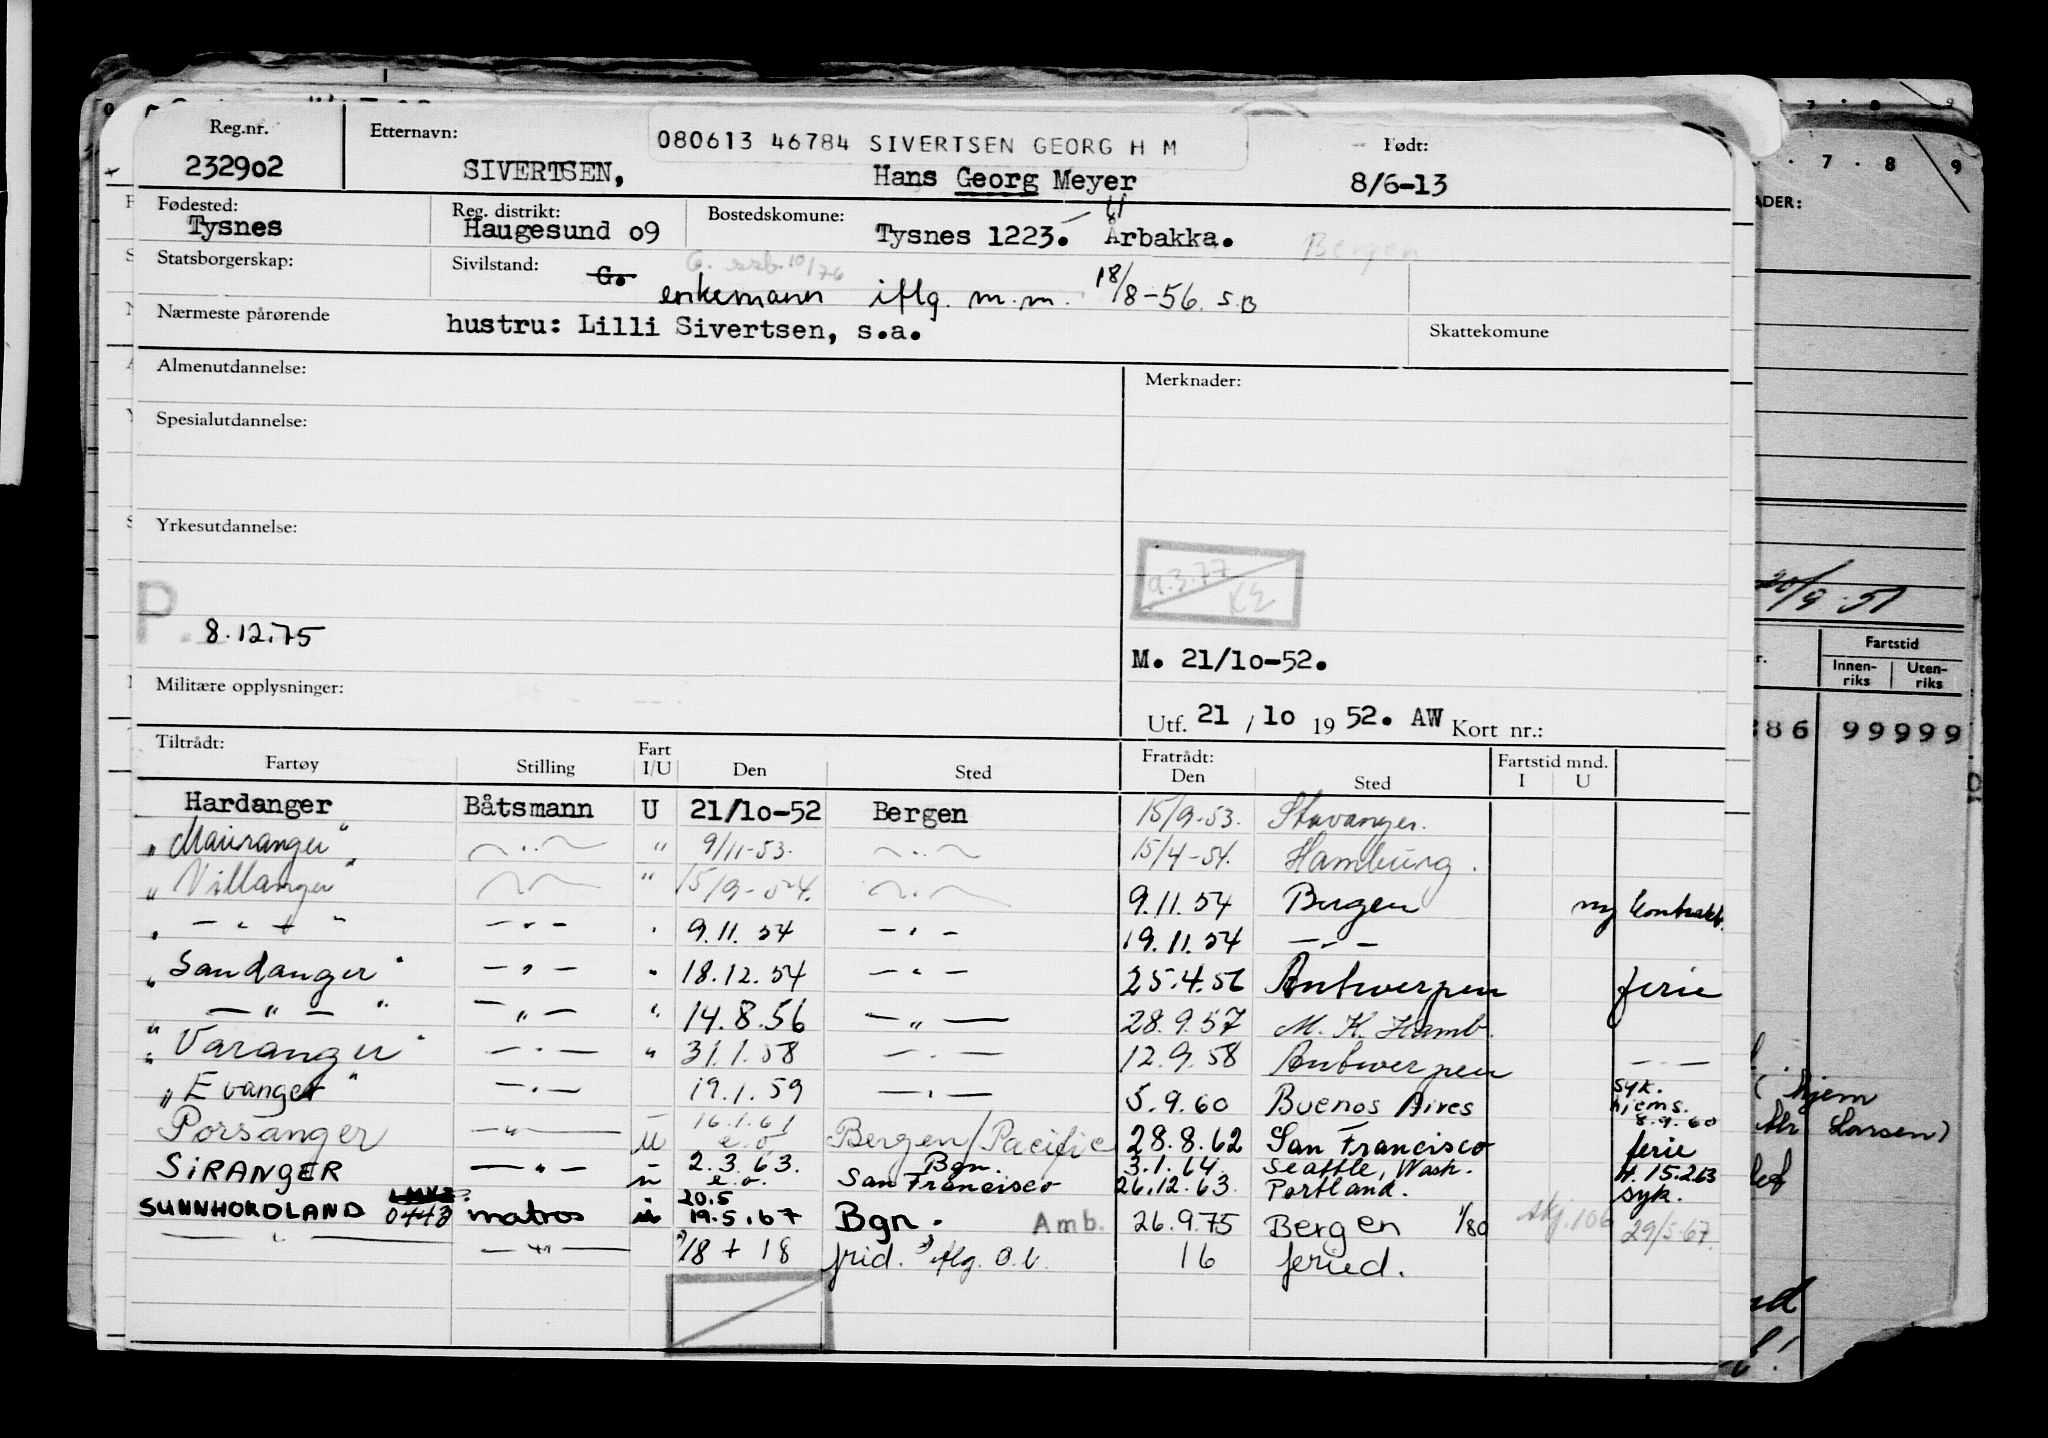 Reg.nr. Etternavn: 080613 46784 SIVERTSEN GEORG H M Født:
232902 SIVERTSEN, Hans Georg Meyer 8/6-13
Fødested: Reg. distrikt: Bostedskomune:
Tysnes Haugesund 09 Tysnes 1223. Årbakka. Bergen
Statsborgerskap: Sivilstand: G. G. 10/76
enkemann iflg. m.m. 18/8-56. S.B
Nærmeste pårørende hustru: Lilli Sivertsen, s.a. Skattekomune
Almenutdannelse: Merknader:
Spesialutdannelse:
Yrkesutdannelse:
9.3.77 KE
P. 8.12.75
M. 21/10-52.
Militære opplysninger:
Utf. 21 / 10 19 52. AW Kort nr.:
Tiltrådt: Fart Fratrådt: Fartstid mnd.
Fartøy Stilling I/U Den Sted Den Sted I U
Hardanger Båtsmann U 21/10-52 Bergen 15/9-53. Stavanger.
" Mauranger " — " — " 9/11-53. — " — 15/4-54. Hamburg.
" Villanger " — " — " 15/9-54. — " — 9.11.54 Bergen ny kontrakt.
" — " — " — " — " 9.11.54 — " — 19.11.54 — " —
" Sandanger " — " — " 18.12.54 — " — 25.4.56 Antwerpen ferie
" — " — " — " — " 14.8.56 — " — 28.9.57 M. K. Hamb.
" Varanger " — " — " 31.1.58 — " — 12.9.58 Antwerpen — " —
" Evanger " — " — 19.1.59 — " — 5.9.60 Buenos Aires syk. hjems. 8.9.60
Porsanger — " — U 16.1.61 e.o Bergen/Pacific 28.8.62 San Francisco ferie
SIRANGER — " — " 2.3.63. e.o. Bgn. San Francisco 3.1.64. 26.12.63. Seattle, Wash. Portland. H. 15.2.63 syk.
SUNNHORDLAND 0443 matros " 20.5 19.5.67 Bgn. Amb. 26.9.75 Bergen 1/80 106 29/5-67.
— " — — " — 18 + 18 frid. iflg. O.l. 16 feried.
7 8 9
· 7 · 8 9
ADER:
20/9-51
Fartstid
Innen-riks Uten-riks
386 99999
hjem
Larsen)